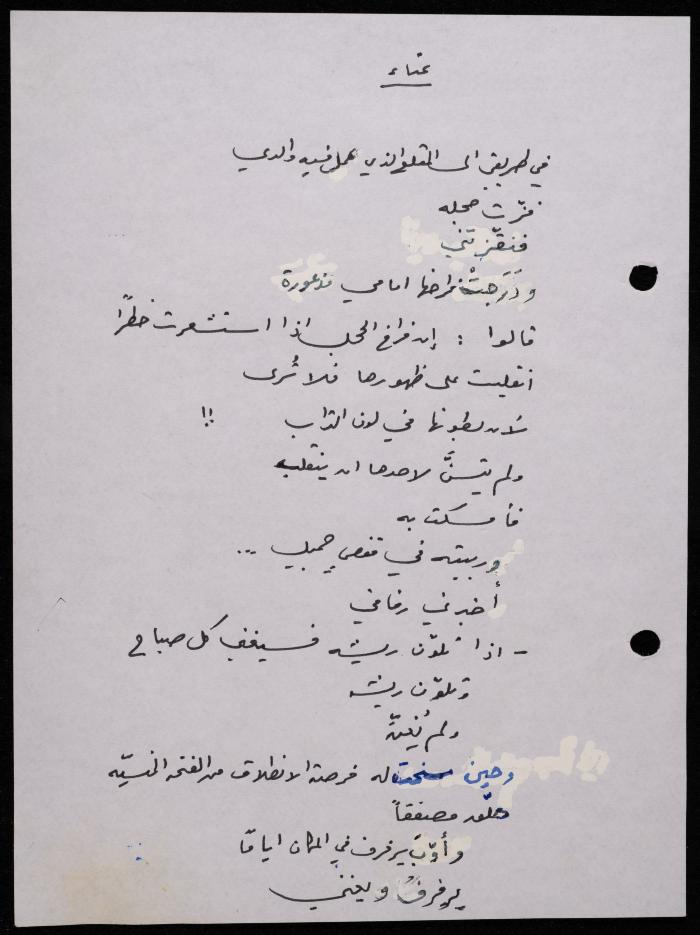 غناء
في طريقي الى المقلع الذي عمل فيه والدي
فرّت حجله
فنقّزتني
ودَرَجتْ فراخها امامي مذعورة
قالوا : إن فراخ الحجل اذا استشعرت خطرًا
انقلبت على ظهورها فلا تُرى
لأن بطونها في لون التراب !!
ولم يتسنَّ لاحدها ان ينقلب
فأمسكت به
وربيته في قفصٍ جميل ...
أخبرني رفاقي
- اذا تلوّن ريشه فسيغني كل صباح
وتلوّن ريشه
ولم يُغنّ
وحين سنحت له فرصة الانطلاق من الفتحة المنسيّه
حلّق مصفقاً
و يرفرف في المكان ايامًا
يرفرفُ ويغني